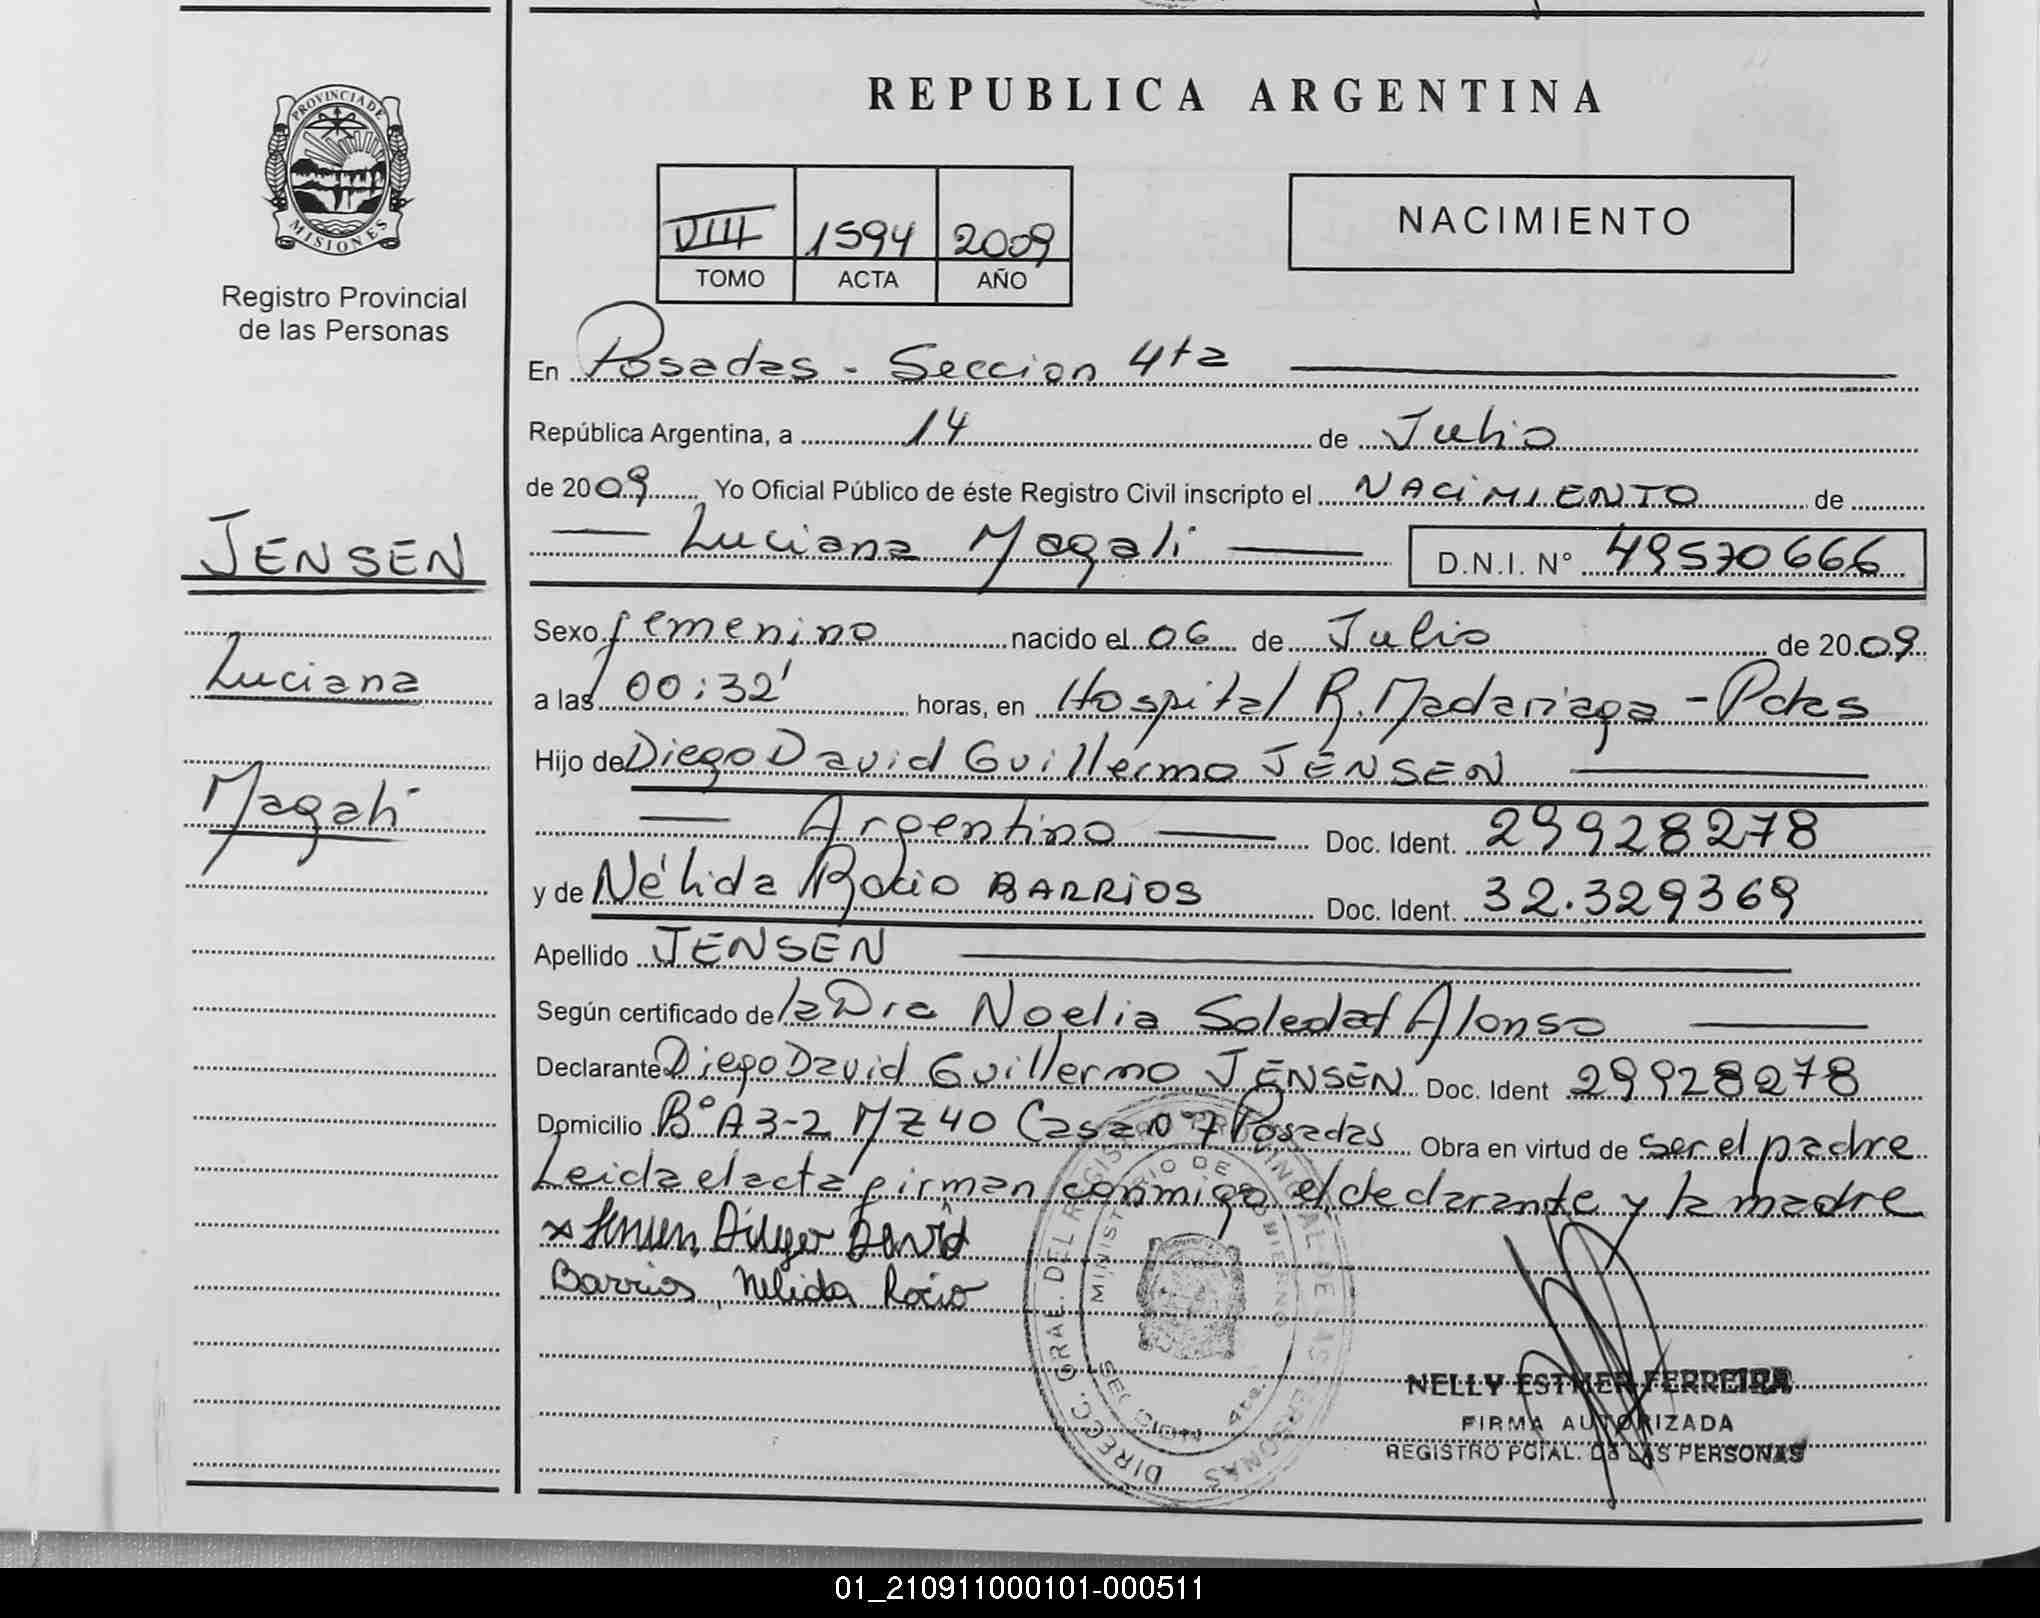 REPUBLICA ARGENTINA
PROVINCIA DE
MISIONES
Registro Provincial
de las Personas
VIII 1594 2009
TOMO ACTA AÑO
NACIMIENTO
En Posadas - Seccion 4ta
República Argentina, a 14 de Julio
de 2009 Yo Oficial Público de éste Registro Civil inscripto el NACIMIENTO de
Luciana Magali D.N.I. N° 49570666
JENSEN
Luciana
Magali
Sexo femenino nacido el 06 de Julio de 2009
a las 00:32' horas, en Hospital R. Madariaga - Pdas
Hijo de Diego David Guillermo JENSEN
Argentino Doc. Ident. 29928278
y de Nélida Rocio BARRIOS Doc. Ident. 32.329369
Apellido JENSEN
Según certificado de la Dra Noelia Soledad Alonso
Declarante Diego David Guillermo JENSEN Doc. Ident 29928278
Domicilio B° A3-2 MZ 40 Casa N° 7 Posadas Obra en virtud de ser el padre
Leida el acta firman conmigo el declarante y la madre
x Jensen, Diego David
Barrios, Nelida Rocio
DIRECC. GRAL. DEL REGISTRO PROVINCIAL DE LAS PERSONAS
MINISTERIO DE GOBIERNO
SECCION 4ta.
NELLY ESTHER FERREIRA
FIRMA AUTORIZADA
REGISTRO PCIAL. DE LAS PERSONAS
01_210911000101-000511